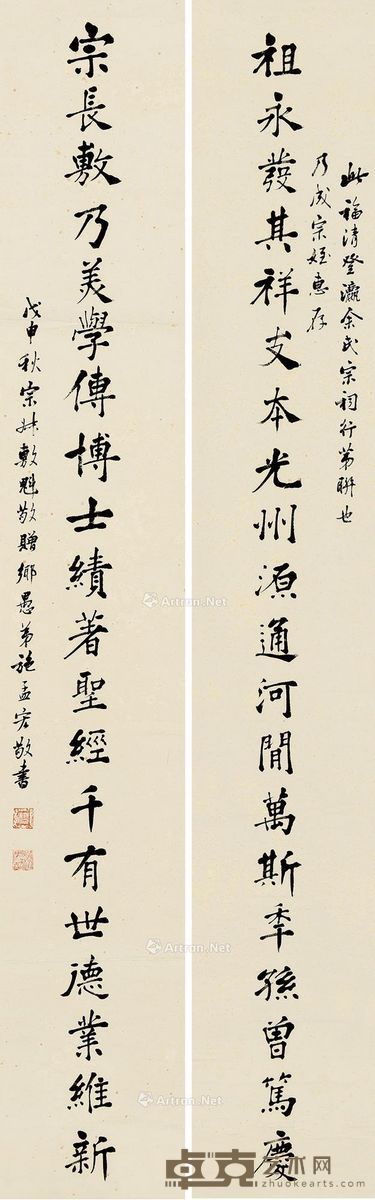 此福清登瀛余氏宗祠行第聯也
乃成宗姪惠存
祖永發其祥支本光州源通河間萬斯年孫曾篤慶
宗長敷乃美學傳博士績著聖經千有世德業維新
戊申秋宗妹敷魁敬贈鄉愚弟施孟宏敬書
Artron.Net
Artron.Net
Artron.Net
Artron.Net
卓克艺术网
www.zhuokearts.com